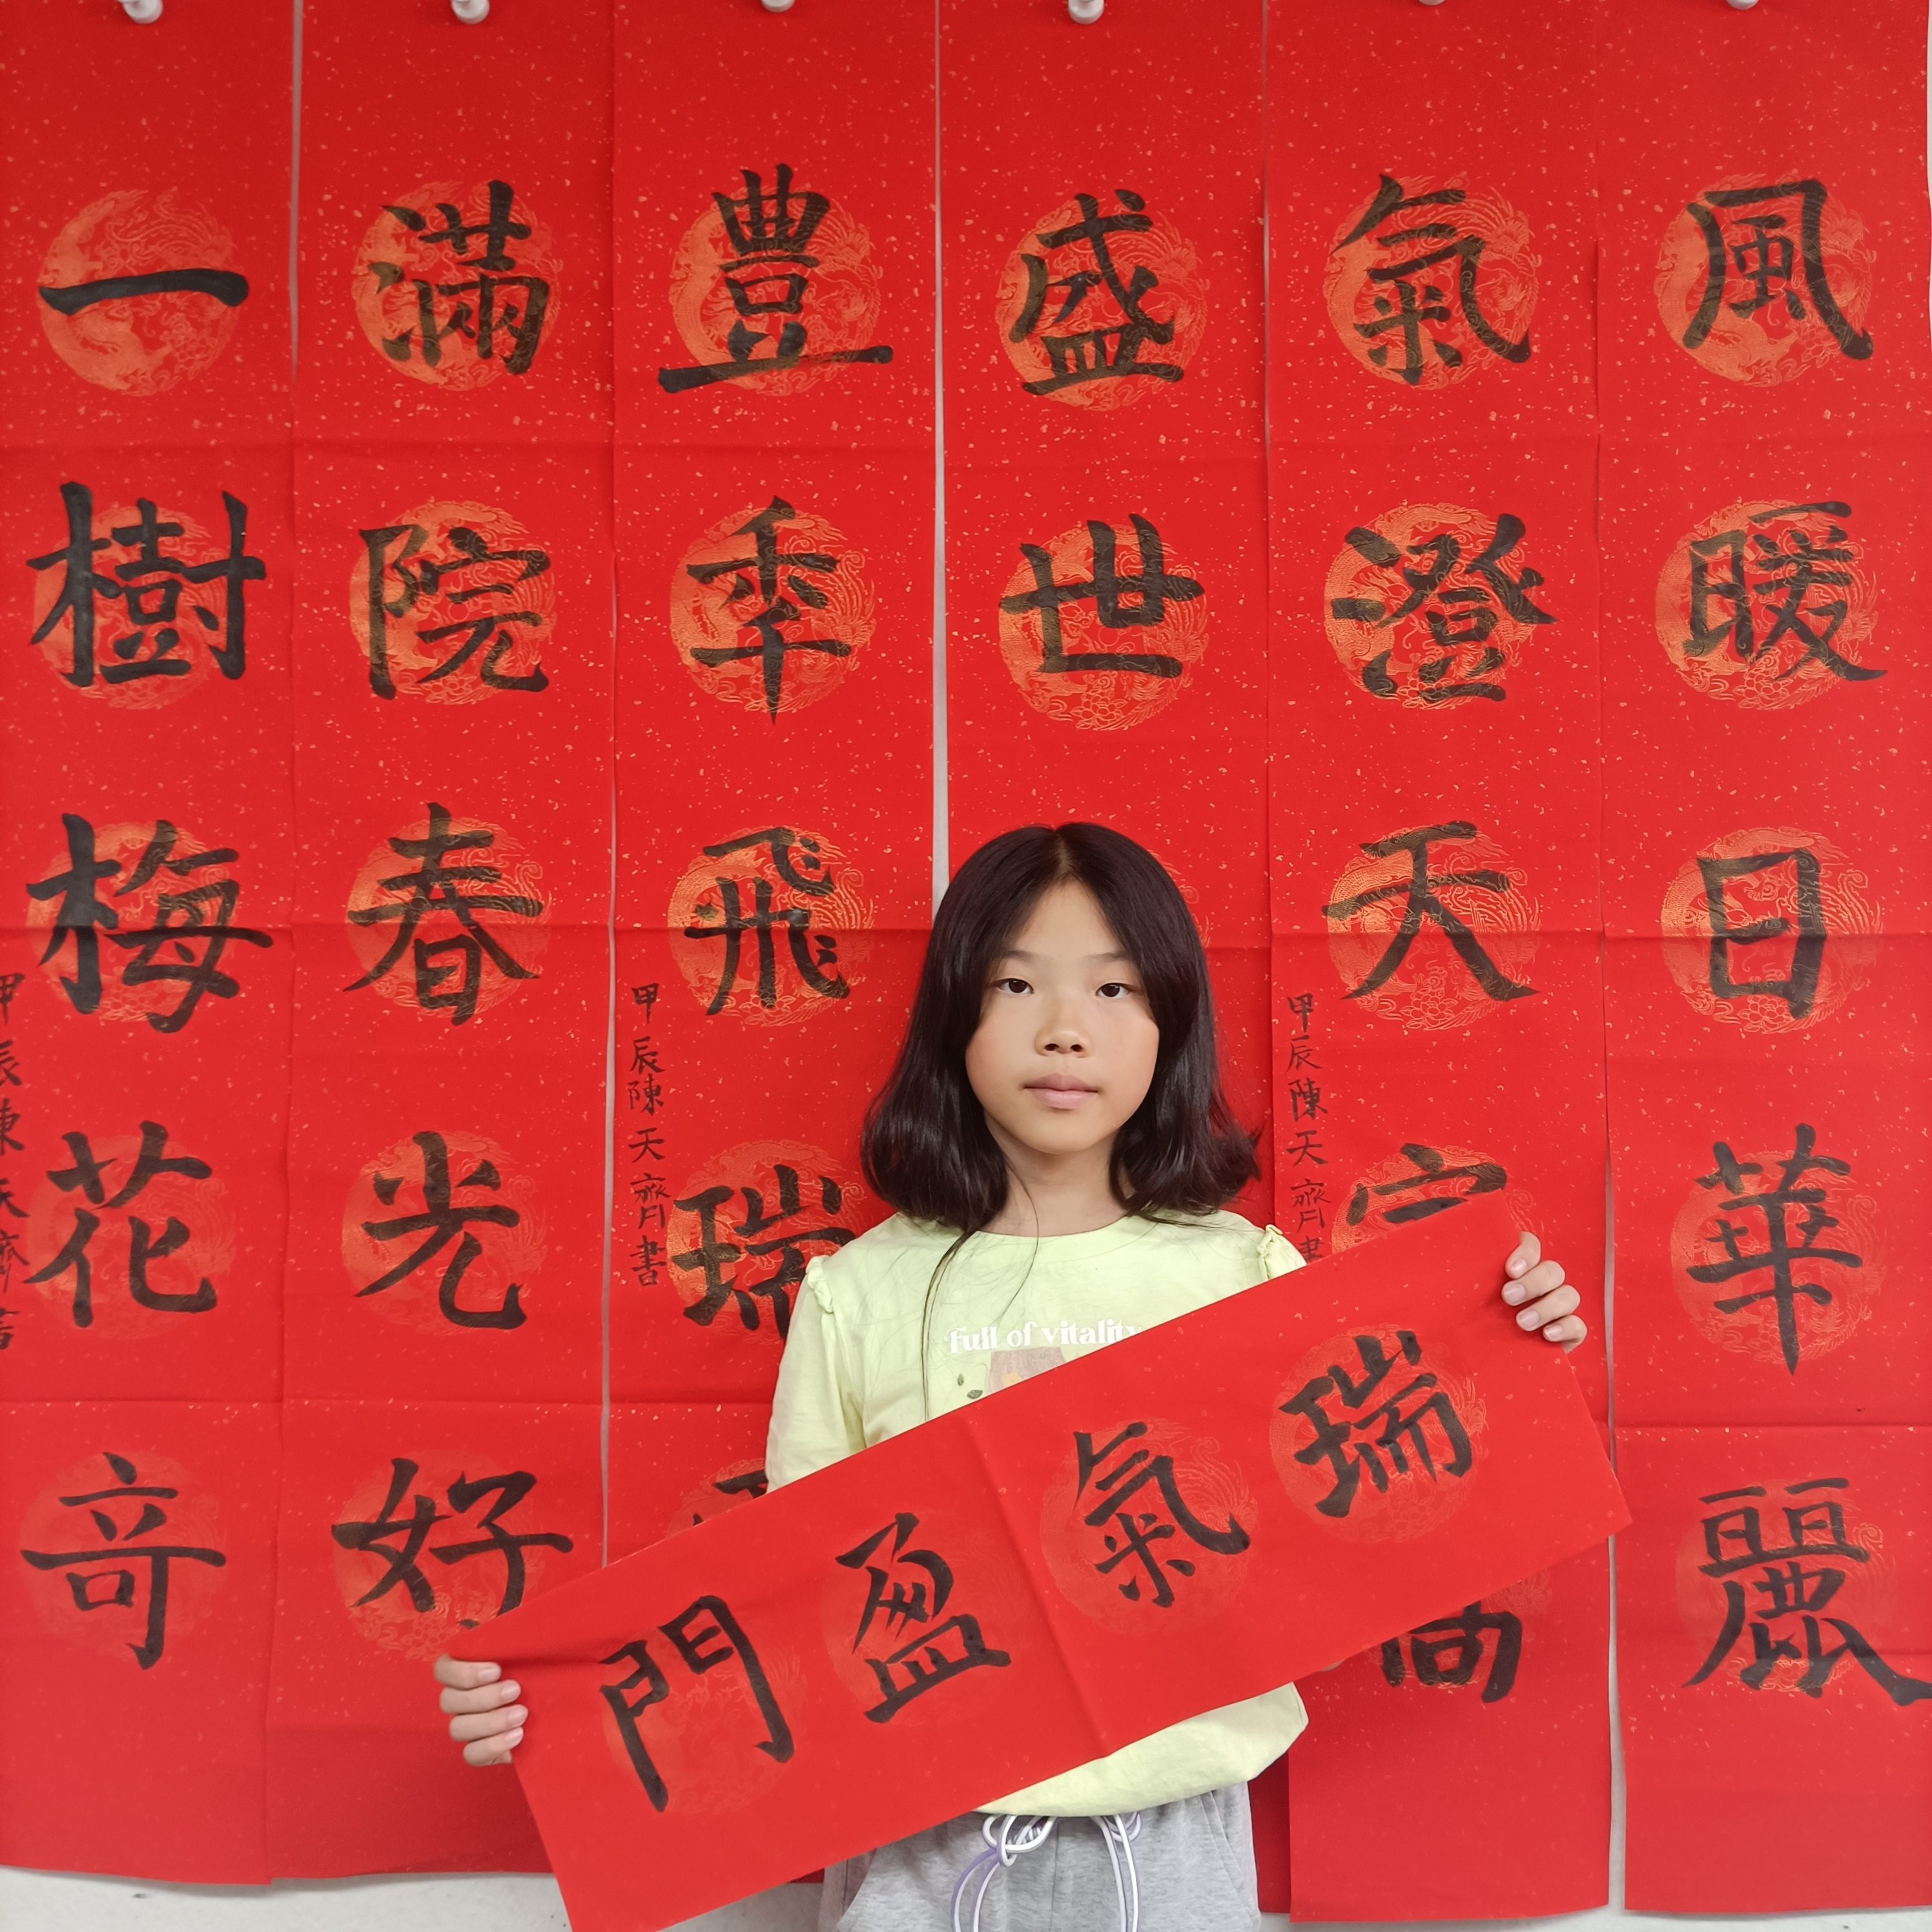 風暖日華麗
氣澄天
甲辰陳天齊書
盛世
豊秊飛瑞
甲辰陳天齊書
滿院春光好
一樹梅花奇
甲辰陳天齊書
瑞氣盈門
Full of vitality